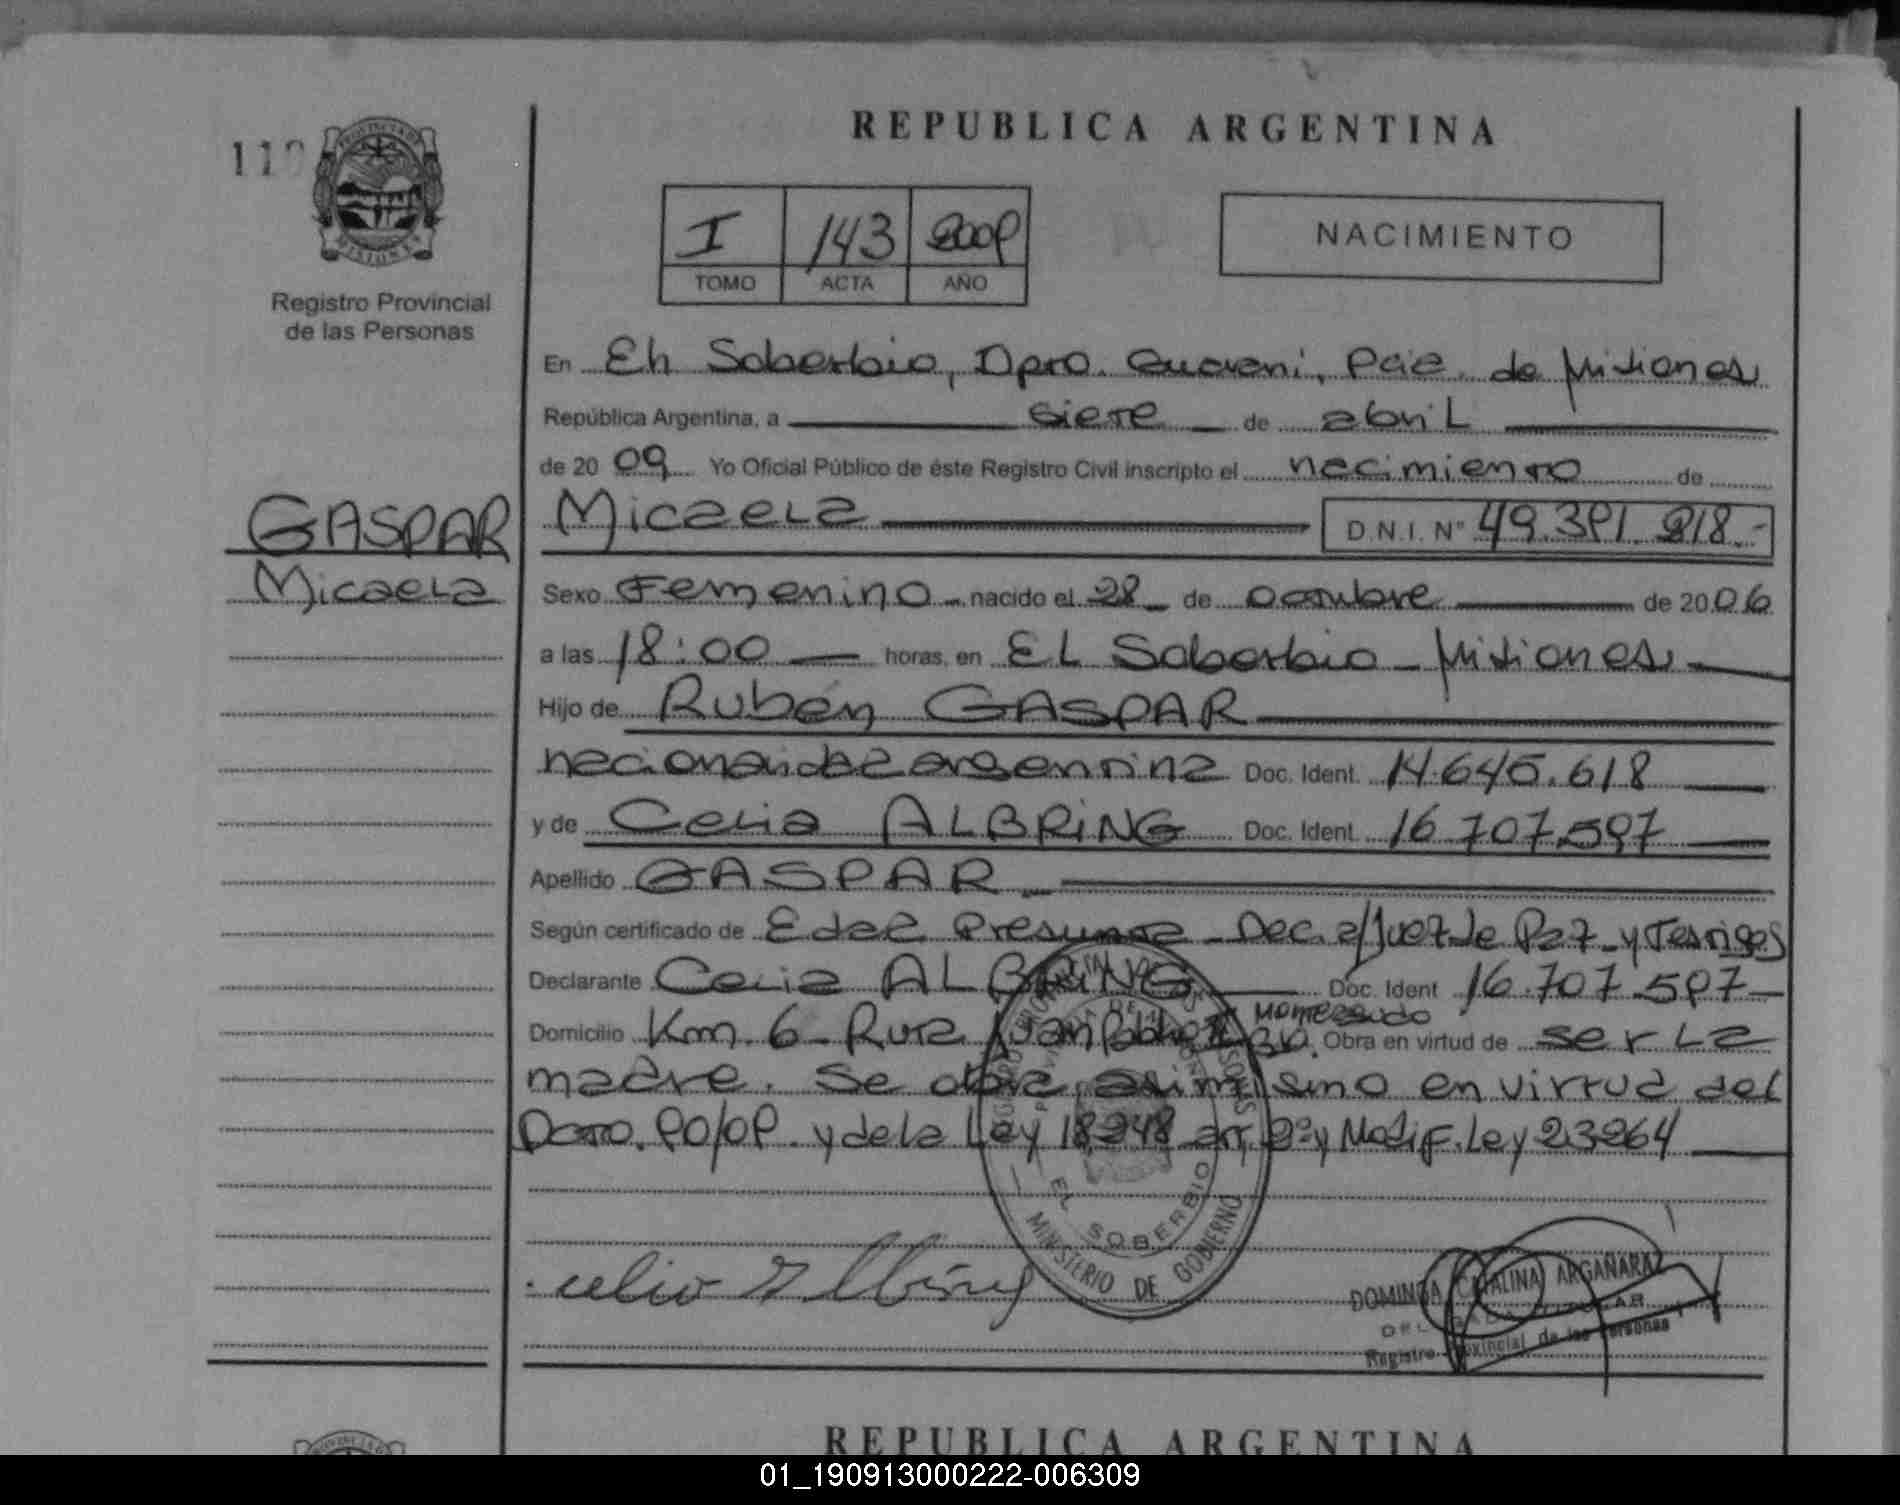 REPUBLICA ARGENTINA
I 143 2009
TOMO ACTA AÑO
NACIMIENTO
Registro Provincial
de las Personas
En El Soberbio, Dpto. Guarani, Pcia. de Misiones
República Argentina, a siete de abril
de 2009 Yo Oficial Público de éste Registro Civil inscripto el nacimiento de
GASPAR
Micaela
Micaela D.N.I. Nº 49.391.818.-
Sexo Femenino nacido el 28 de octubre de 2006
a las 18:00 horas, en El Soberbio - Misiones
Hijo de Rubén GASPAR
nacionalidad argentina Doc. Ident. 14.645.618
y de Celia ALBRING Doc. Ident. 16.707.597
Apellido GASPAR
Según certificado de Edad Presunta - Dec. a/Juez de Paz - y Testigos
Declarante Celia ALBRING Doc. Ident 16.707.597
Domicilio Km. 6 - Ruta Juan Pablo II Obra en virtud de ser la
madre. Se obra asimismo en virtud del
Dcto. 90/09 y de la Ley 18.248 art. 2º y Modif. Ley 23264
EL SOBERBIO
MINISTERIO DE GOBIERNO
DOMINGA CATALINA ARGAÑARAZ
Registro Provincial de las Personas
REPUBLICA ARGENTINA
01_190913000222-006309